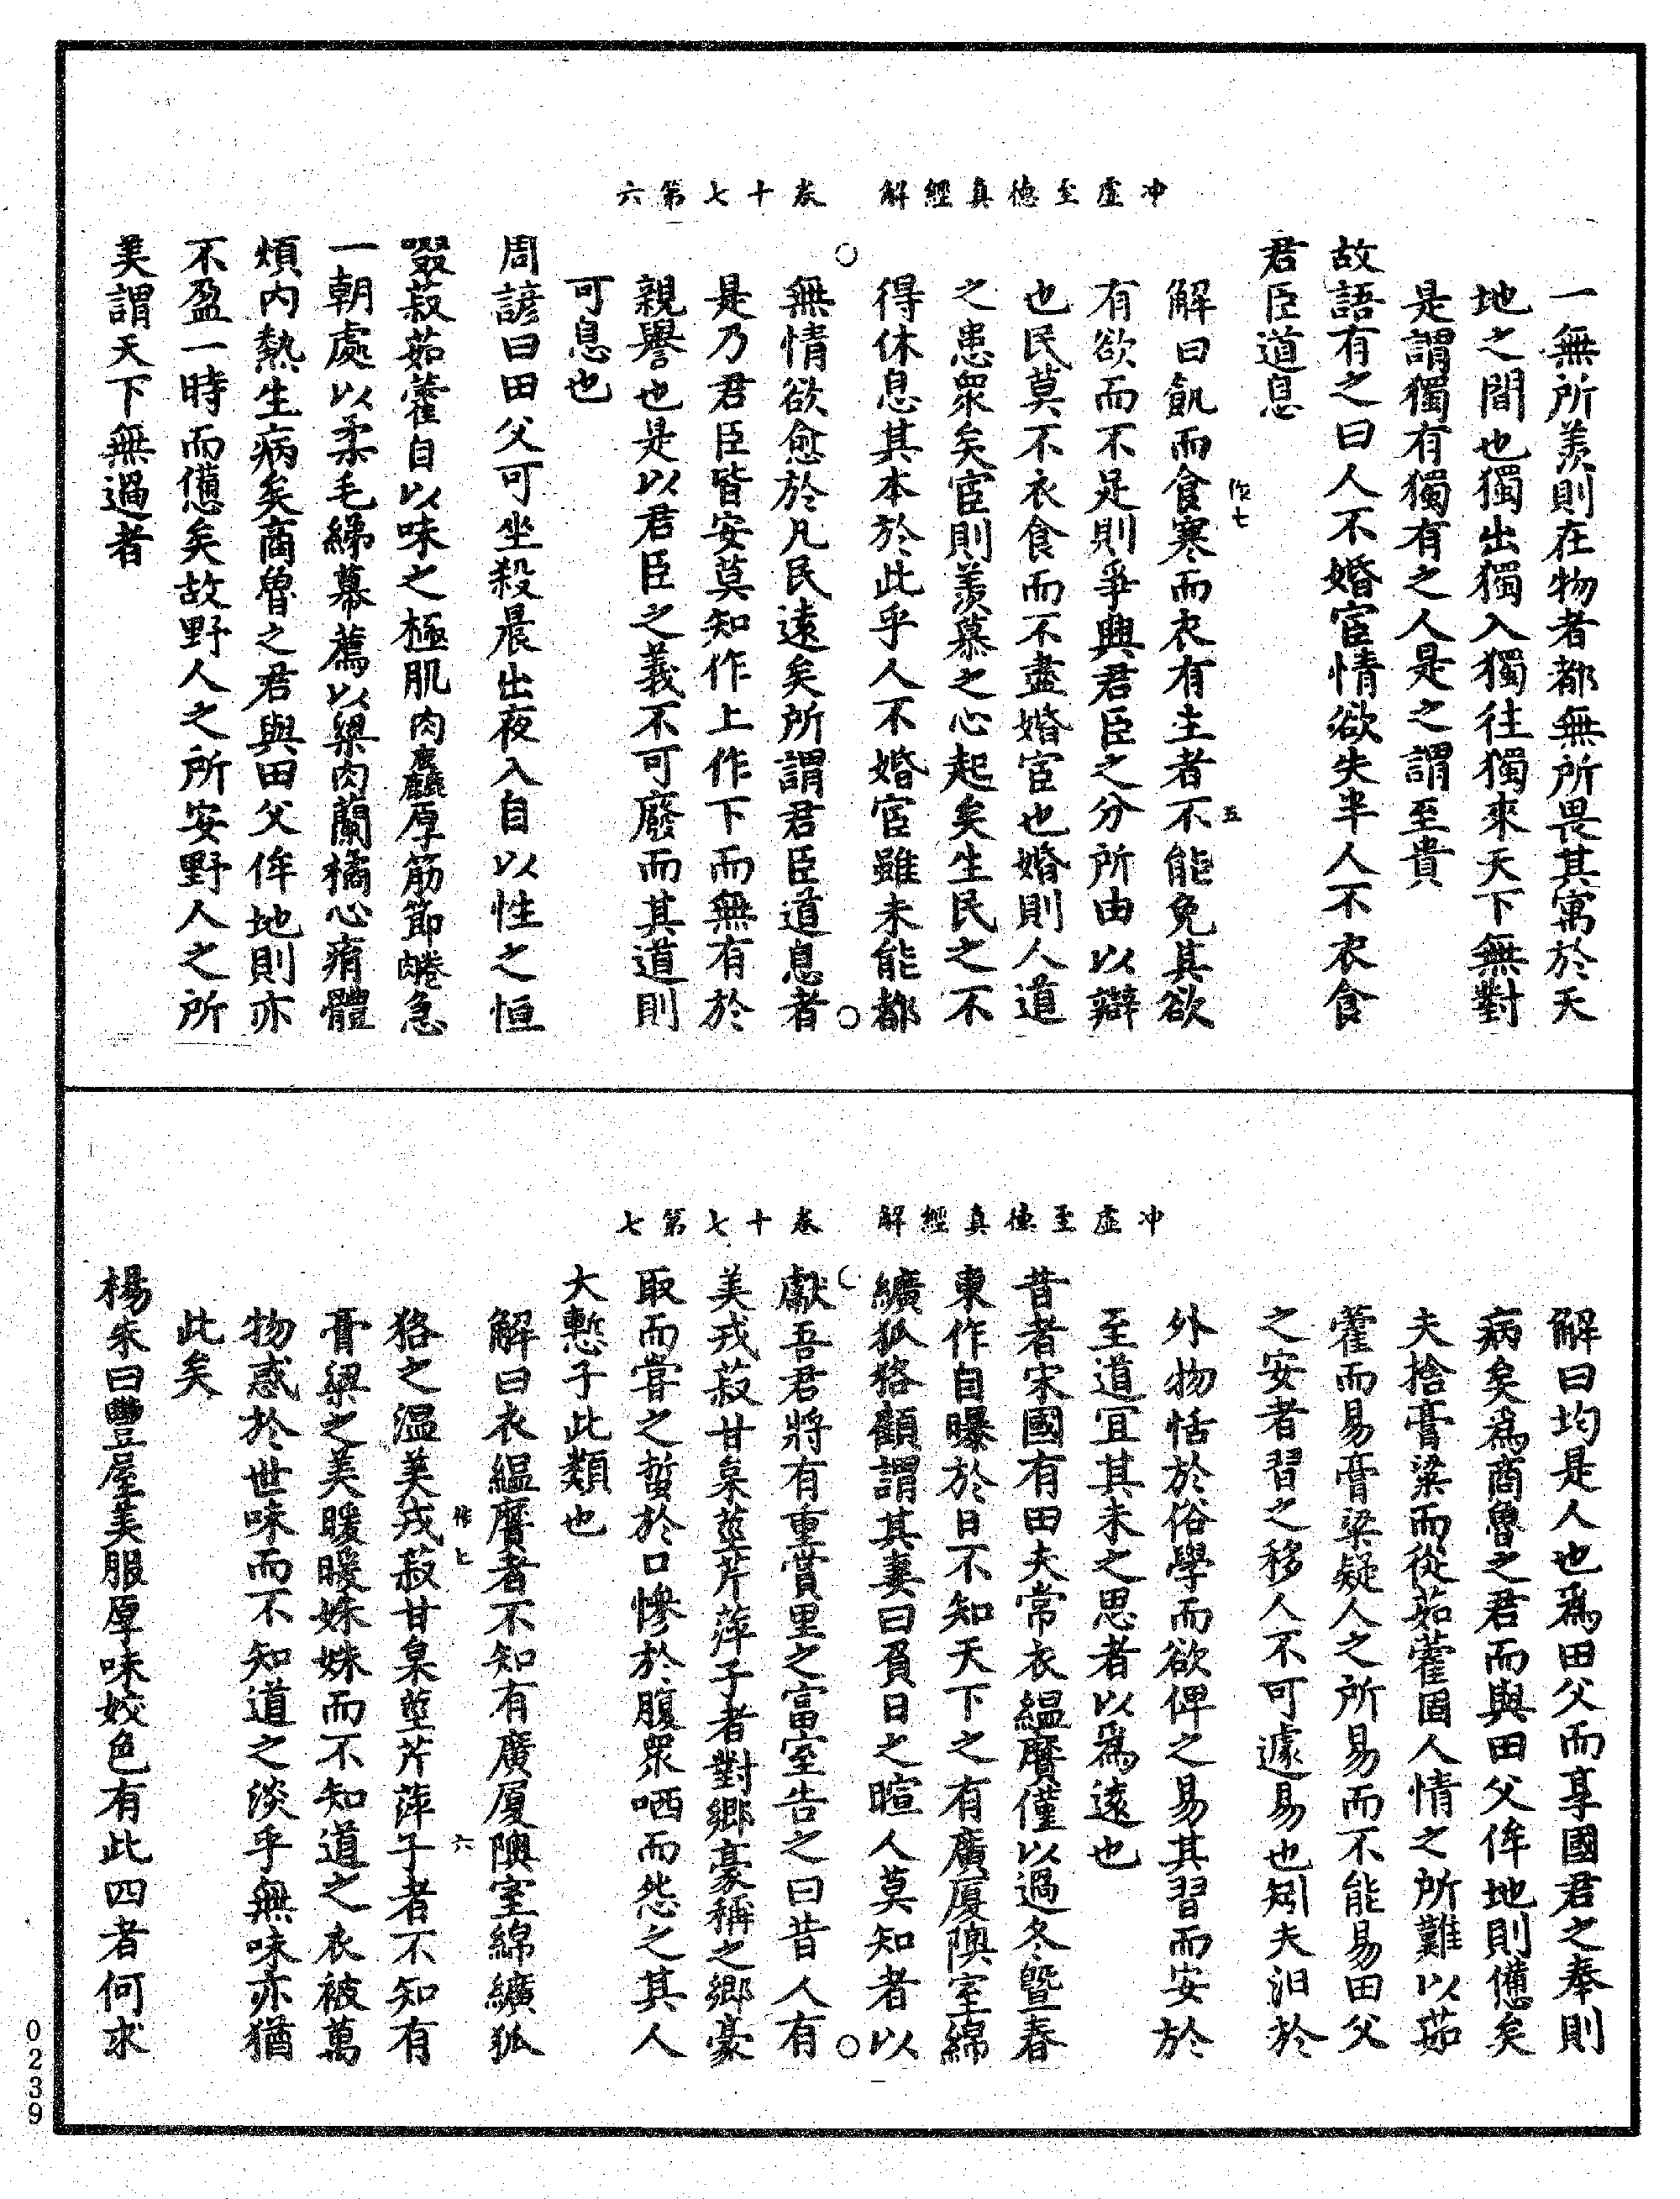 冲虛至德真經解　卷十七第六
一無所羨則在物者都無所畏其寓於天
地之間也獨出獨入獨往獨來天下無對
是謂獨有獨有之人是之謂至貴
故語有之曰人不婚宦情欲失半人不衣食
君臣道息
作七
五
解曰飢而食寒而衣有生者不能免其欲
有欲而不足則爭興君臣之分所由以辯
也民莫不衣食而不盡婚宦也婚則人道
之患衆矣宦則羨慕之心起矣生民之不
得休息其本於此乎人不婚宦雖未能都
無情欲愈於凡民遠矣所謂君臣道息者
是乃君臣皆安莫知作上作下而無有於
親譽也是以君臣之義不可廢而其道則
可息也
周諺曰田父可坐殺晨出夜入自以性之恒
啜菽茹藿自以味之極肌肉麤厚筋節䠇急
一朝處以柔毛綈幕薦以梁肉蘭橘心痟體
煩內熱生病矣商魯之君與田父侔地則亦
不盈一時而憊矣故野人之所安野人之所
美謂天下無過者
冲虛至德真經解　卷十七第七
解曰均是人也爲田父而享國君之奉則
病矣爲商魯之君而與田父侔地則憊矣
夫捨膏粱而從茹藿固人情之所難以茹
藿而易膏梁疑人之所易而不能易田父
之安者習之移人不可遽易也矧夫汨於
外物恬於俗學而欲俾之易其習而安於
至道宜其未之思者以爲遠也
昔者宋國有田夫常衣緼黂僅以過冬暨春
東作自曝於日不知天下之有廣厦隩室綿
纊狐狢顧謂其妻曰負日之暄人莫知者以
獻吾君將有重賞里之富室告之曰昔人有
美戎菽甘枲莖芹萍子者對鄉豪稱之鄉豪
取而嘗之蜇於口慘於腹衆哂而怨之其人
大慙子此類也
解曰衣緼黂者不知有廣厦隩室綿纊狐
作七
六
狢之溫美戎菽甘枲莖芹萍子者不知有
膏粱之美暖暖姝姝而不知道之衣被萬
物惑於世味而不知道之淡乎無味亦猶
此矣
楊朱曰豐屋美服厚味姣色有此四者何求
0239